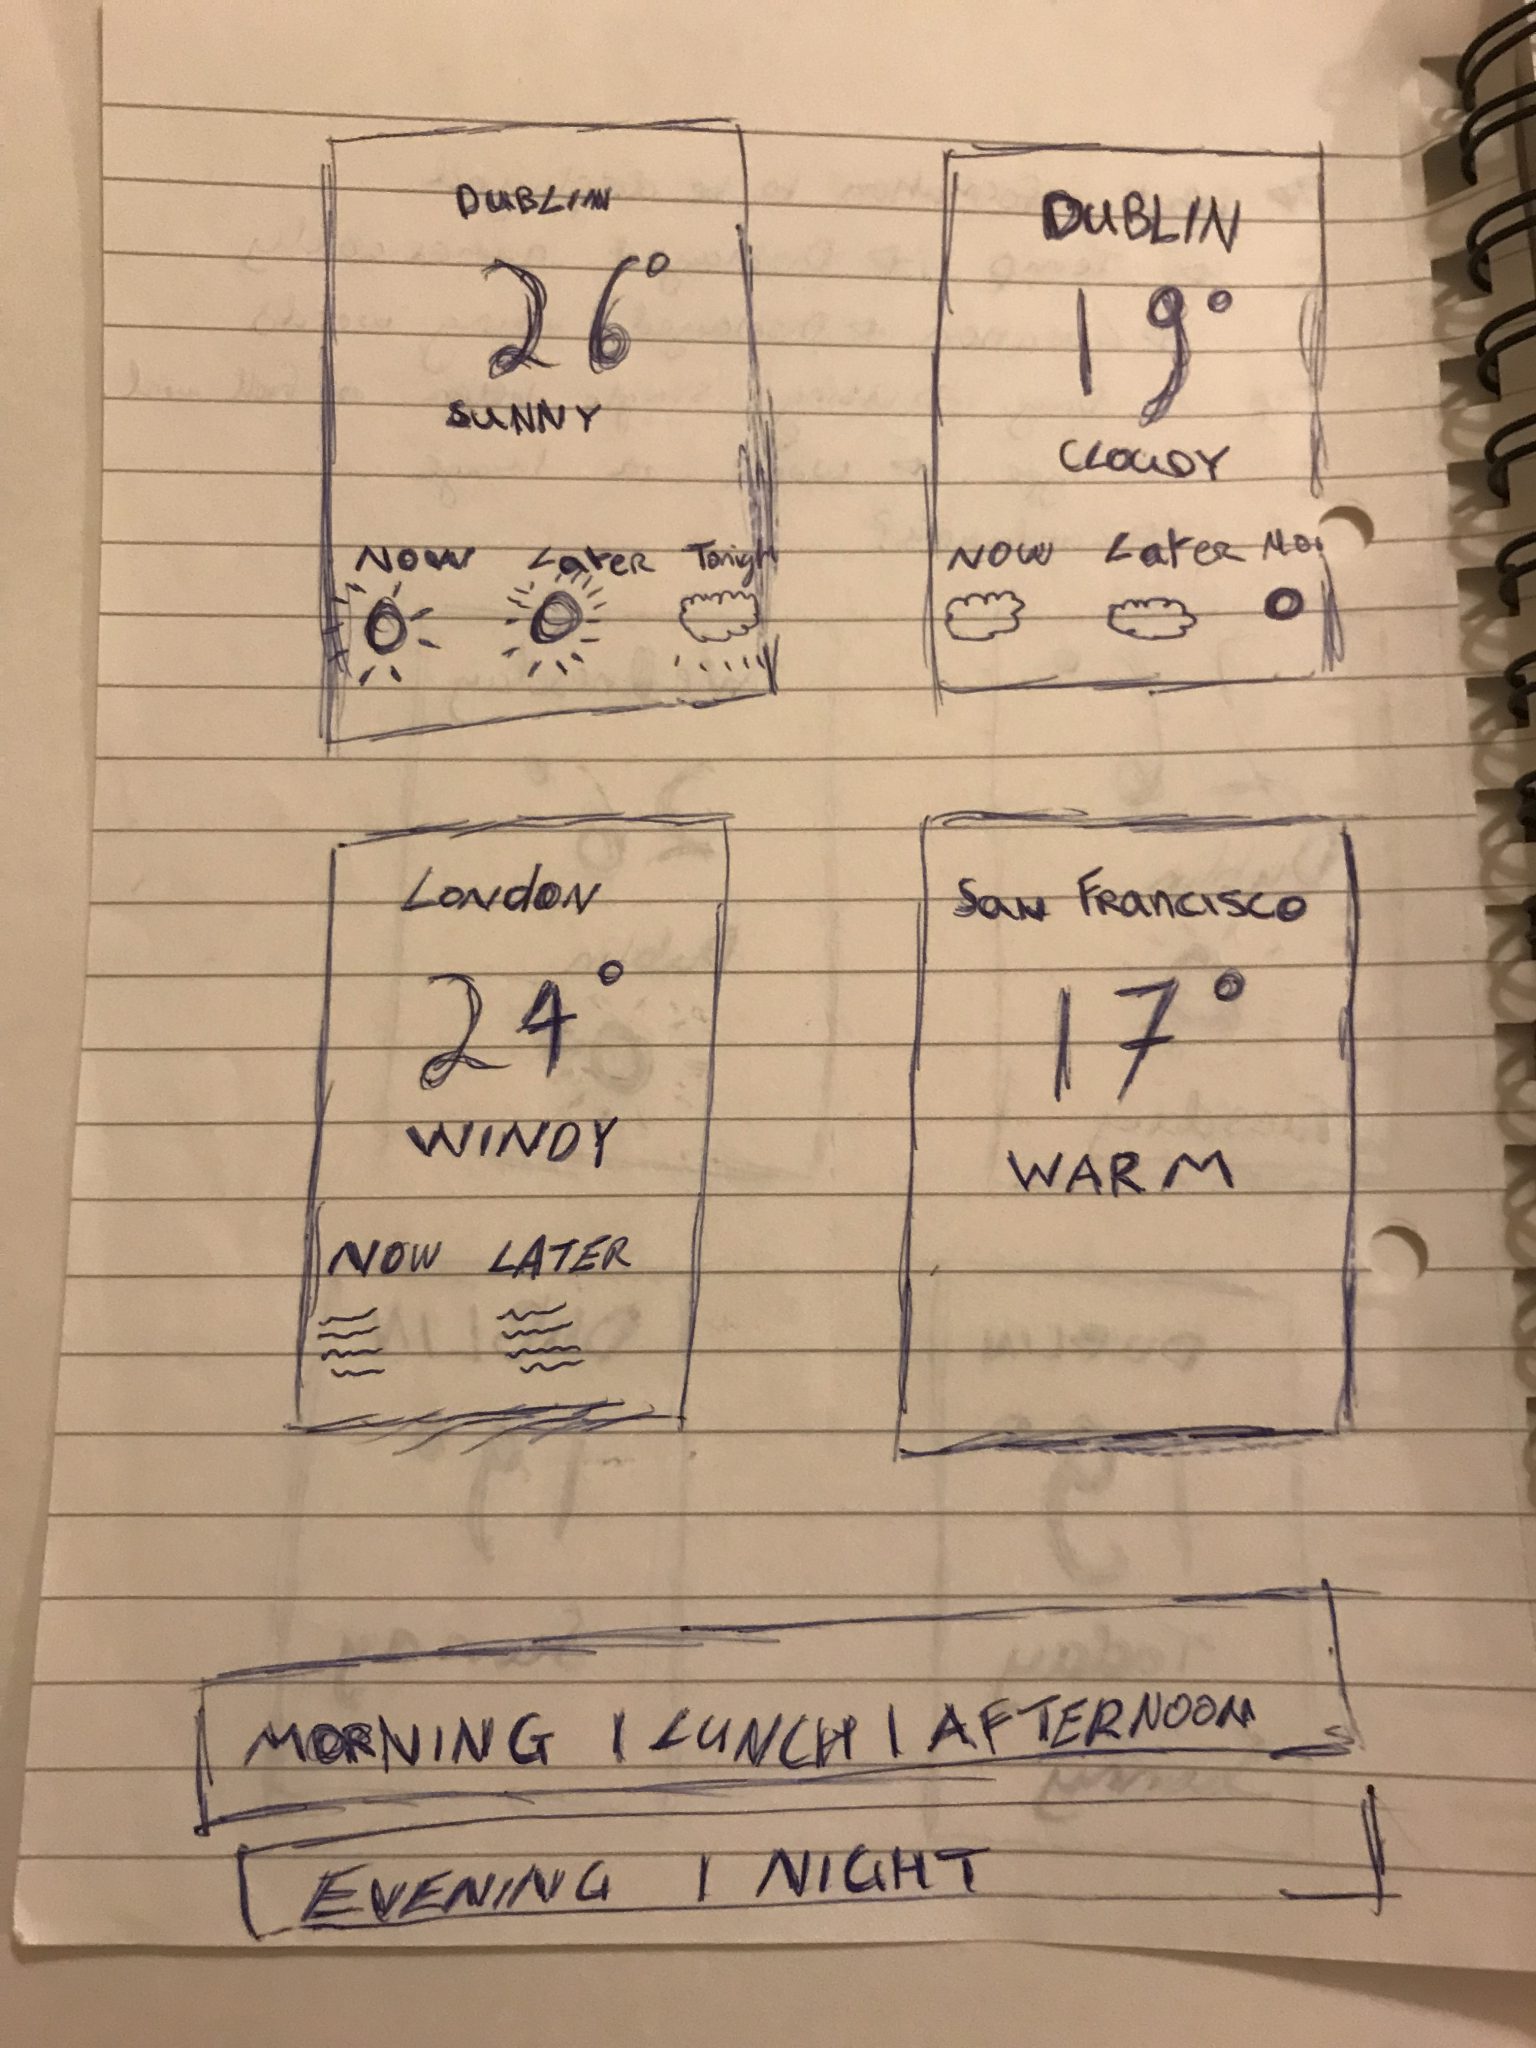 DUBLIN
26°
SUNNY
NOW Later Tonight
DUBLIN
19°
CLOUDY
NOW Later
London
24°
WINDY
NOW LATER
San Francisco
17°
WARM
MORNING | LUNCH | AFTERNOON
EVENING | NIGHT